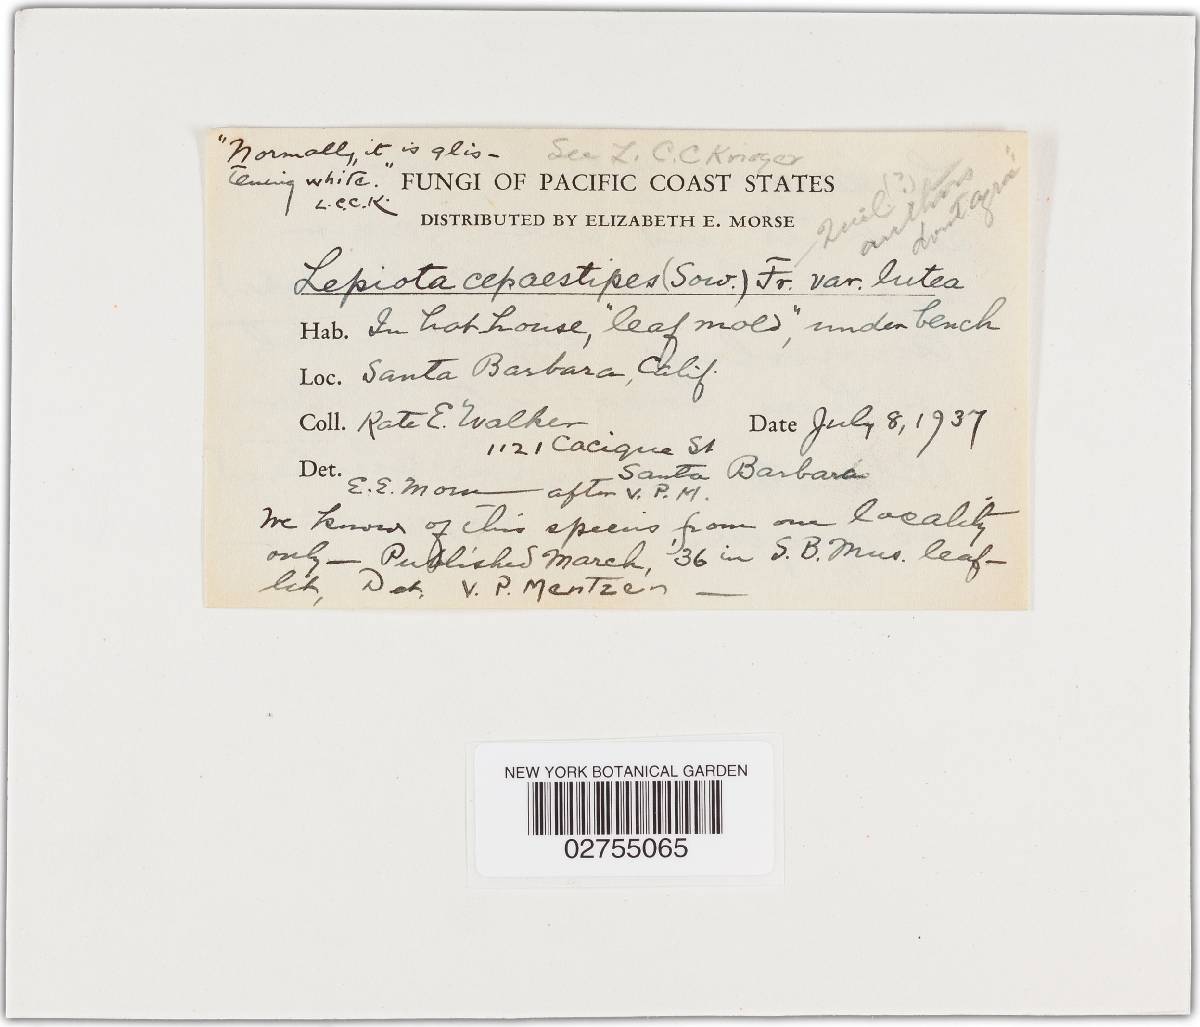 "Normally, it is glis-
tening white."
L.C.C.K.
See L. C. C Krieger
FUNGI OF PACIFIC COAST STATES
DISTRIBUTED BY ELIZABETH E. MORSE
(?)
authors
dont agree"
Lepiota cepaestipes (Sow.) Fr. var. lutea
Hab. In hot-house, "leaf mold", under bench
Loc. Santa Barbara, Calif.
Coll. Kate E. Walker Date July 8, 1937
1121 Cacique St
Santa Barbara
Det. E. E. Morse — after V. P. M.
We know of this species from one locality
only — Published March, '36 in S. B. Mus. leaf-
let, Det. V. P. Mentzen —
NEW YORK BOTANICAL GARDEN
02755065